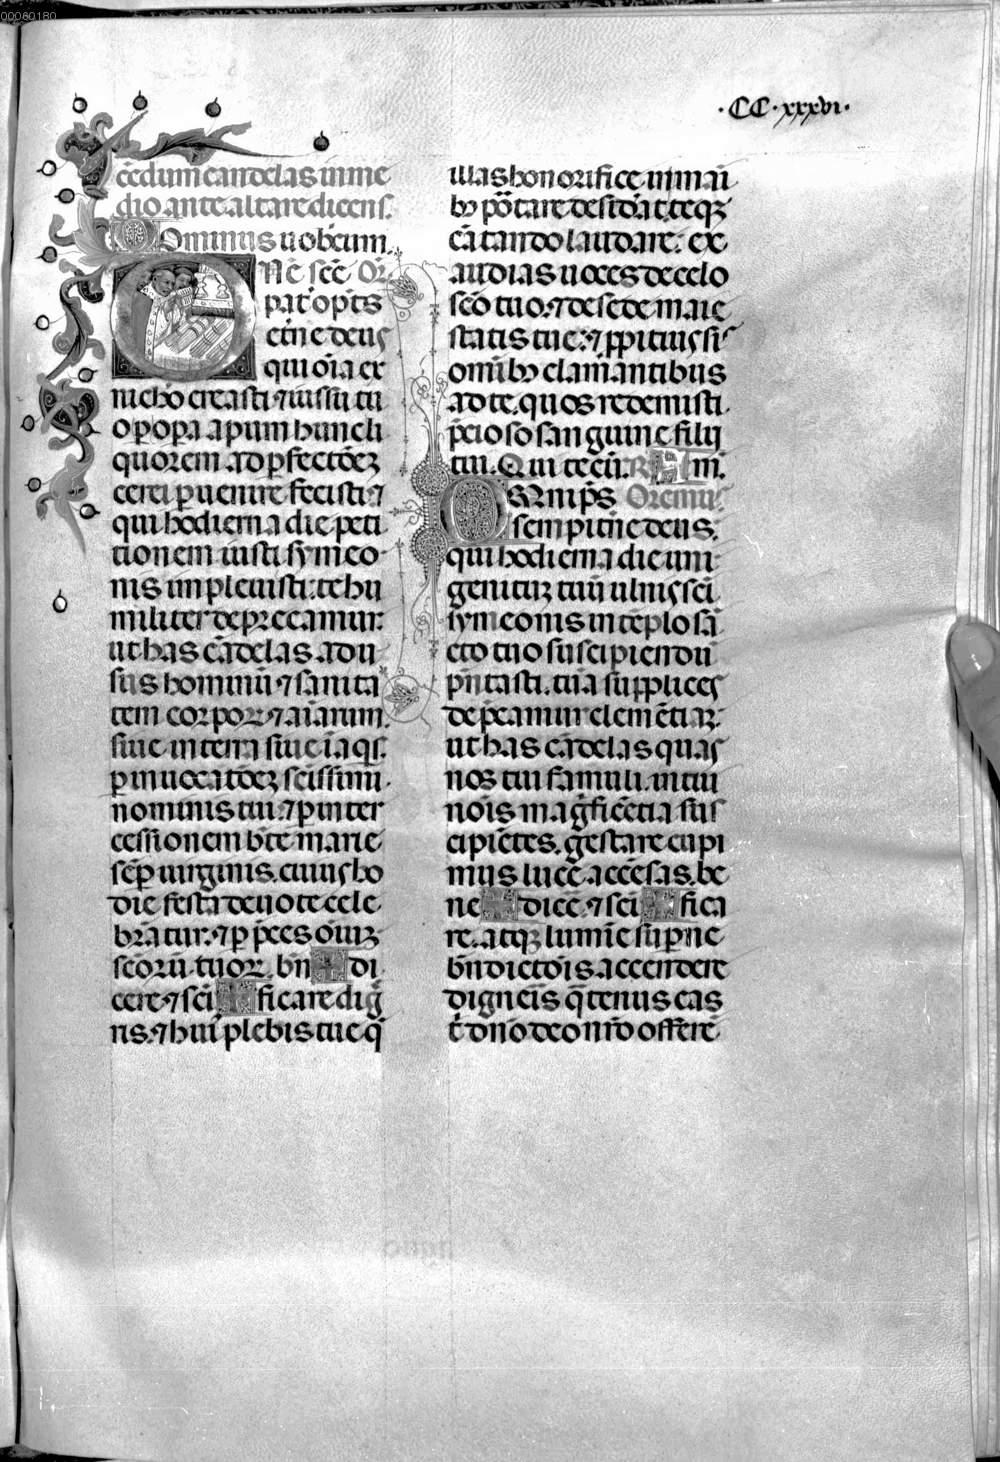 00060180
·CC·xxxvi·
cēdum candelas in me
dio ante altare dicens.
Dominus uobcum.
Dn̄e scē Or̄
pat̄ opt̄s
et̄ne deus
qui oīa ex
nichō creasti ⁊ iussu tu
o p̱ opa apum hunc li
quorem ad p̱fectōeꝫ
cerei p̱uenire fecisti ⁊
qui hodierna die peti
tionem iusti symeo
nis impleuisti: te hu
militer dep̱recamur:
ut has cādelas ad u
sus hominū ⁊ sanita
tem corpoꝝ ⁊ aīarum.
siue in terra siue ī aqs̄.
p̱ inuocatōeꝫ scīssimi
nominis tui: ⁊ p̱ inter
cessionem bt̄e marie
semp̄ uirginis. cuius ho
die festa deuote cele
brātur: ⁊ p̱ p̄ces oīuꝫ
scōrū tuoꝝ. bn̄ ✠ di
cere ⁊ scī ✠ ficare diḡ
ris. ⁊ hui' plebis tue q̄
illas honorifice in manī
bꝫ pōtare desid̄at. teqꝫ
cātando laudare: ex
audias uoces de celo
scō tuo: ⁊ de sede maie
statis tue: ⁊ p̱pitius sis
omībꝫ clamantibus
ad te. quos redemisti
p̄cioso sanguine filij
tui. Qui tecū: R Am̄.
OMnip̄s Oremus
sempit̄ne deus.
qui hodierna die uni
genituꝫ tuū ulnis scī
symeonis in tēplo sā
cto tuo suscipiendū
pn̄tasti. tuā supplices
dep̄camur clemētiaꝫ.
ut has cādelas quas
nos tui famuli. in tui
noīs maḡficētia sus
cipiētes. gestare cupi
mus luce accēsas. be
ne ✠ dice ⁊ scī ✠ fica
re. atqꝫ lumīe sup̱ne
bn̄dictōis accendere
digneīs q̄tenus eas
t̄ dn̄o deo nr̄o offerē